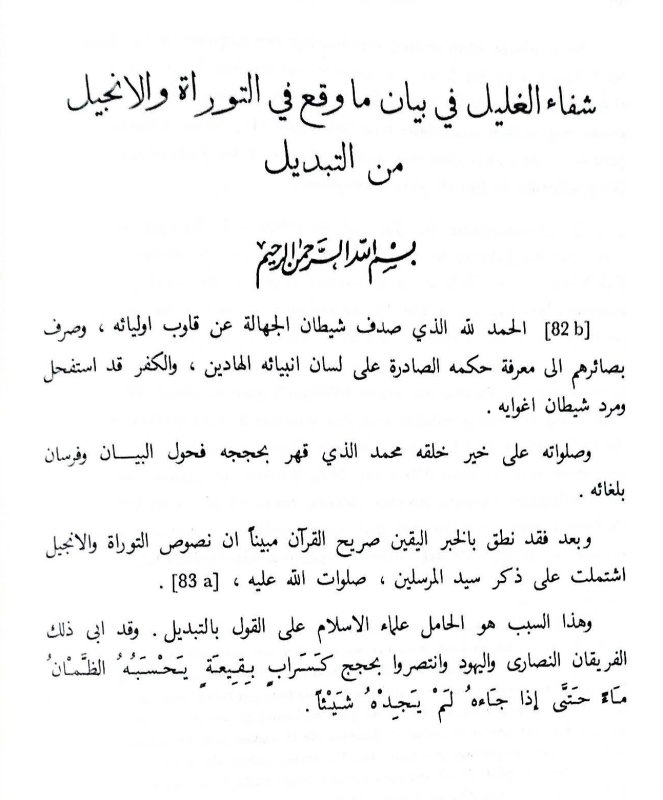 شفاء الغليل في بيان ما وقع في التوراة والانجيل
من التبديل
بسم الله الرحمن الرحيم
[82 b] الحمد لله الذي صدف شيطان الجهالة عن قلوب اوليائه ، وصرف
بصائرهم الى معرفة حكمه الصادرة على لسان انبيائه الهادين ، والكفر قد استفحل
ومرد شيطان اغوايه .
وصلواته على خير خلقه محمد الذي قهر بحججه فحول البيــان وفرسان
بلغائه .
وبعد فقد نطق بالخبر اليقين صريح القرآن مبيناً ان نصوص التوراة والانجيل
اشتملت على ذكر سيد المرسلين ، صلوات الله عليه ، [83 a] .
وهذا السبب هو الحامل علماء الاسلام على القول بالتبديل . وقد ابى ذلك
الفريقان النصارى واليهود وانتصروا بحجج كَسَرابٍ بِقِيعَةٍ يَحْسَبُهُ الظَّمْانُ
مَاءً حَتَّى إذا جَاءهُ لَمْ يَجِدْهُ شَيْئاً .